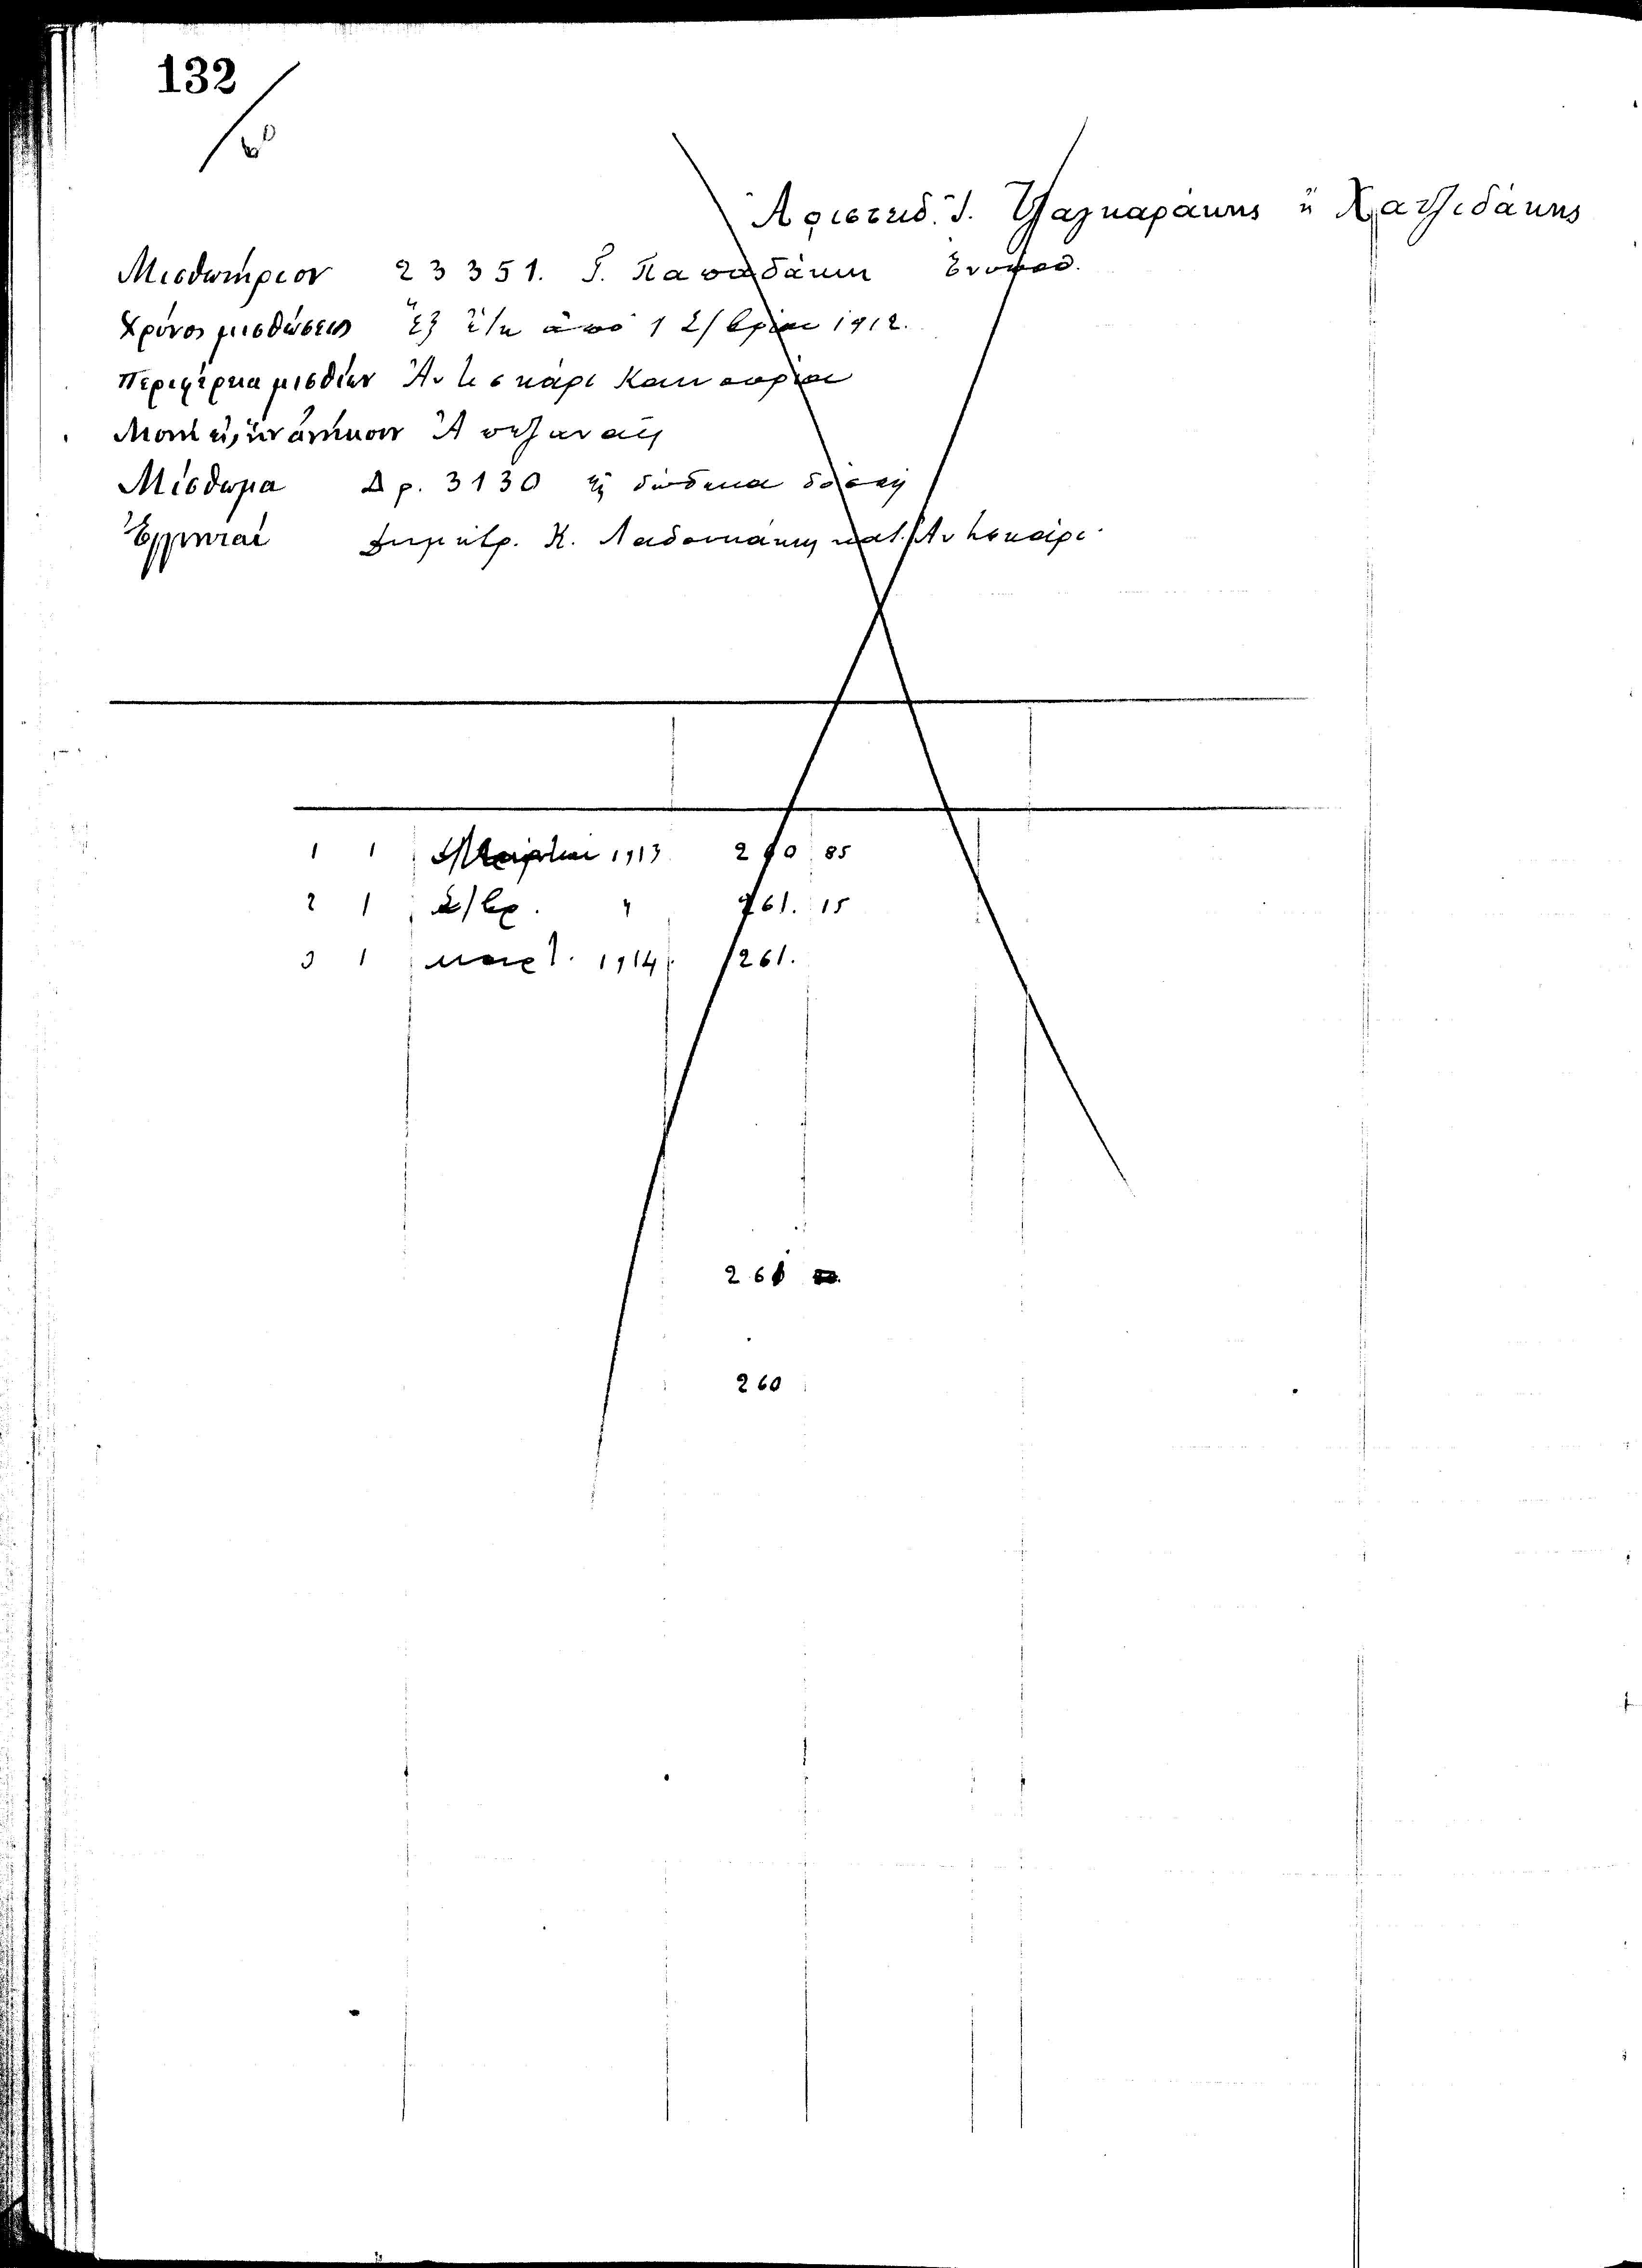 132
Ἀριστείδ. Ἰ. Τζαγκαράκης ἢ Χατζιδάκης
Μισθωτήριον 23351. Γ. Παπαδάκη
Χρόνος μισθώσεως Ἓξ ἔτη ἀπὸ 1 Σ/βρίου 1912.
Περιφέρεια μισθίων Ἀντισκάρι Καινουρίου
Μονὴ εἰς ἣν ἀνήκουν Ἀπεζαναῖς
Μίσθωμα Δρ. 3130 εἰς δώδεκα δόσεις
Ἐγγυηταί Δημήτρ. Κ. Λαδουκάκης κατ. Ἀντισκάρι
1 1 Μαρτίου 1913 260 85
2 1 Σ/βρ. " 261. 15
3 1 Μαρτ. 1914. 261.
261
260